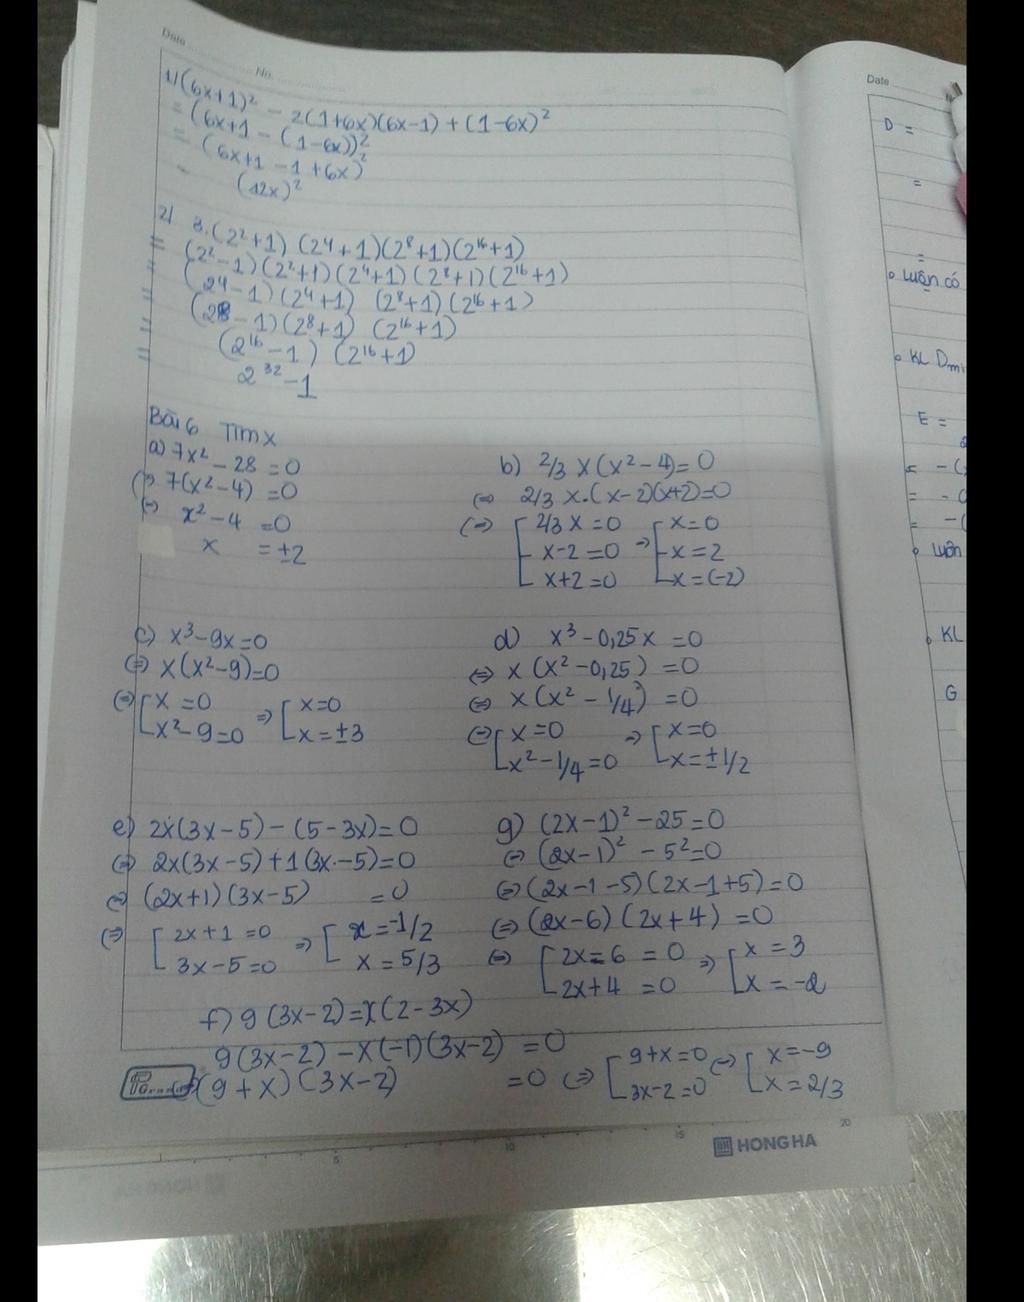 Date
No.
1/ (6x+1)² - 2(1+6x)(6x-1) + (1-6x)²
= (6x+1 - (1-6x))²
= (6x+1 -1 +6x)²
(12x)²
2/ 3.(2²+1) (2⁴+1)(2⁸+1)(2¹⁶+1)
= (2²-1)(2²+1)(2⁴+1)(2⁸+1)(2¹⁶+1)
= (2⁴-1)(2⁴+1) (2⁸+1)(2¹⁶+1)
= (2⁸-1)(2⁸+1) (2¹⁶+1)
= (2¹⁶-1) (2¹⁶+1)
= 2³²-1
Bài 6 Tìm x
a) 7x² - 28 = 0
(=) 7(x²-4) = 0
(=) x²-4 = 0
x = ±2
b) 2/3 x(x²-4) = 0
(=) 2/3 x.(x-2)(x+2)=0
(=) [ 2/3 x = 0 => [ x=0
x-2 = 0 x = 2
x+2 = 0 x = (-2)
c) x³-9x=0
(=) x(x²-9)=0
(=) [ x = 0 => [ x=0
x²-9=0 x=±3
d) x³-0,25x = 0
(=) x(x²-0,25) = 0
(=) x(x² - 1/4) = 0
(=) [ x=0 => [ x=0
x²-1/4=0 x=±1/2
e) 2x(3x-5) - (5-3x)=0
(=) 2x(3x-5)+1(3x-5)=0
(=) (2x+1)(3x-5) = 0
(=) [ 2x+1 = 0 => [ x=-1/2
3x-5=0 x = 5/3
g) (2x-1)² - 25=0
(=) (2x-1)² - 5²=0
(=) (2x-1-5)(2x-1+5)=0
(=) (2x-6)(2x+4) = 0
(=) [ 2x-6 = 0 => [ x = 3
2x+4 = 0 x = -2
f) 9(3x-2)=x(2-3x)
9(3x-2) - x(-1)(3x-2) = 0
(9+x)(3x-2) = 0 (=) [ 9+x=0 (=) [ x=-9
3x-2=0 x = 2/3
5 10 15 20
HONG HA
Date
D =
=
=
Luôn có
KL
E =
= - (
= -
= - (
Luôn
KL
G